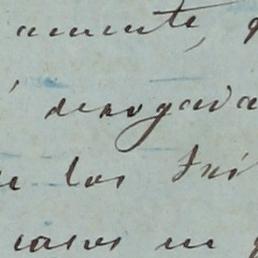 amente,
derogada
los Tri
casos en